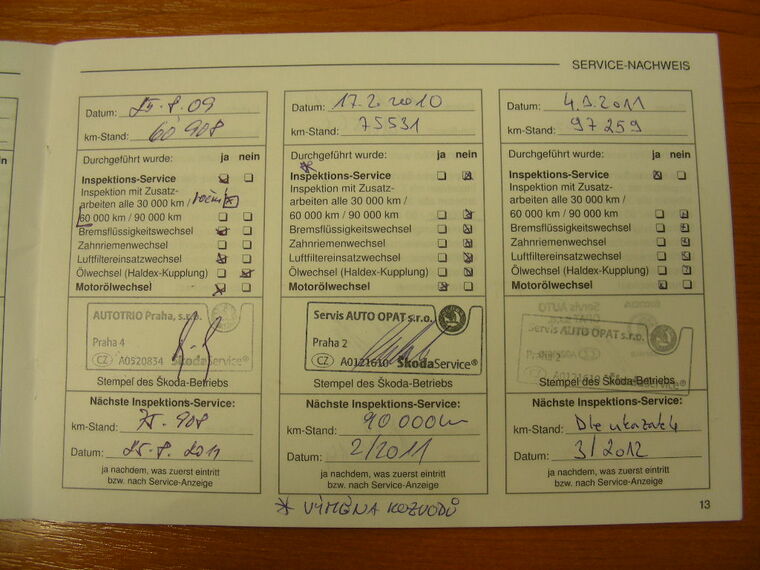 SERVICE-NACHWEIS
Datum: 25.8.09
km-Stand: 60 908
Durchgeführt wurde: ja nein
Inspektions-Service
Inspektion mit Zusatz-
arbeiten alle 30 000 km / roční
60 000 km / 90 000 km
Bremsflüssigkeitswechsel
Zahnriemenwechsel
Luftfiltereinsatzwechsel
Ölwechsel (Haldex-Kupplung)
Motorölwechsel
AUTOTRIO Praha, s.r.o.
Praha 4
CZ A0520834 ŠkodaService
Stempel des Škoda-Betriebs
Nächste Inspektions-Service:
km-Stand: 75 908
Datum: 25.8.2011
ja nachdem, was zuerst eintritt
bzw. nach Service-Anzeige
Datum: 17.2.2010
km-Stand: 75531
Durchgeführt wurde: ja nein
*
Inspektions-Service
Inspektion mit Zusatz-
arbeiten alle 30 000 km /
60 000 km / 90 000 km
Bremsflüssigkeitswechsel
Zahnriemenwechsel
Luftfiltereinsatzwechsel
Ölwechsel (Haldex-Kupplung)
Motorölwechsel
Servis AUTO OPAT s.r.o.
Praha 2
CZ A0121610 ŠkodaService®
Stempel des Škoda-Betriebs
Nächste Inspektions-Service:
km-Stand: 90 000km
Datum: 2/2011
ja nachdem, was zuerst eintritt
bzw. nach Service-Anzeige
* VÝMĚNA ROZVODŮ
Datum: 4.3.2011
km-Stand: 97 259
Durchgeführt wurde: ja nein
Inspektions-Service
Inspektion mit Zusatz-
arbeiten alle 30 000 km /
60 000 km / 90 000 km
Bremsflüssigkeitswechsel
Zahnriemenwechsel
Luftfiltereinsatzwechsel
Ölwechsel (Haldex-Kupplung)
Motorölwechsel
Servis AUTO OPAT s.r.o.
Praha 2
CZ A0121610 ŠkodaService®
Stempel des Škoda-Betriebs
Nächste Inspektions-Service:
km-Stand: Dle ukazatele
Datum: 3/2012
ja nachdem, was zuerst eintritt
bzw. nach Service-Anzeige
13